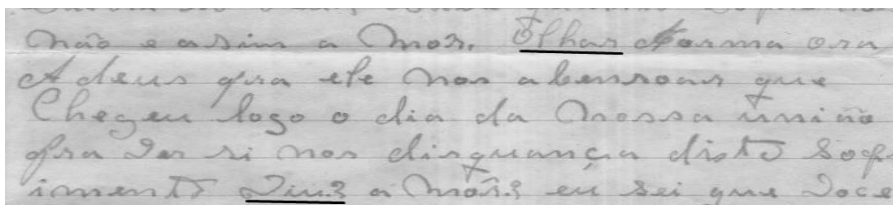 não e asim a Mor. Olhar Norma ora
A deus pra ele nos abensoar que
Chegeu logo o dia da Nossa união
pra ver si nos disquança disto Sof
imento Viu? a Môr? eu sei que voce